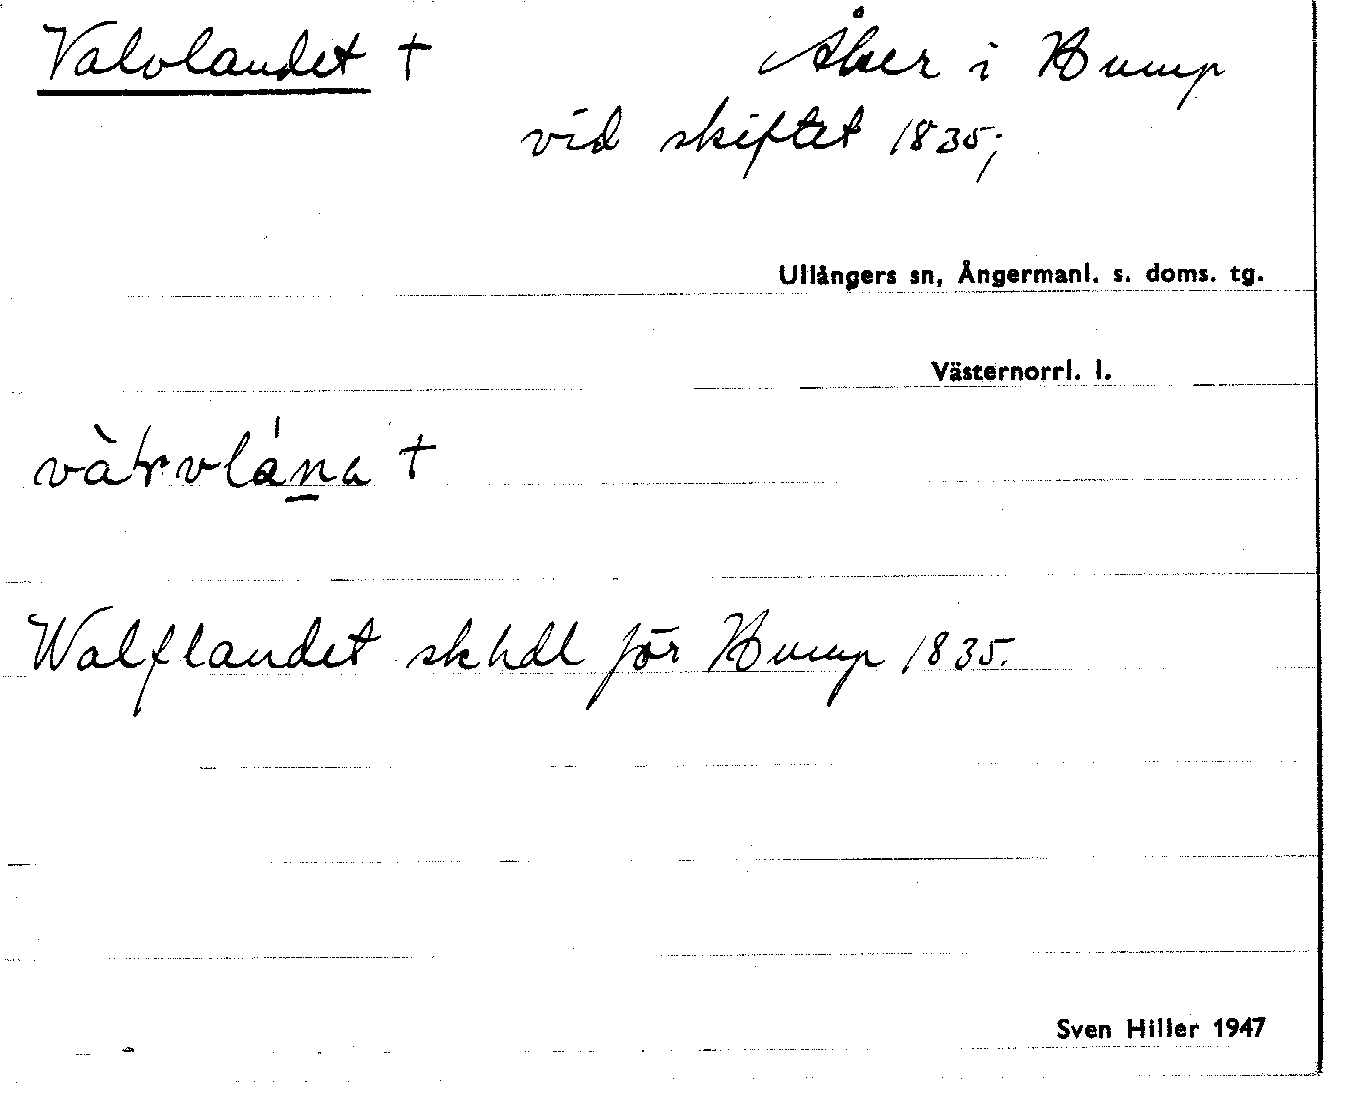 Valvlandet † Åker i Hump
vid skiftet 1835;
Ullångers sn, Ångermanl. s. doms. tg.
Västernorrl. l.
†
Walflandet skhdl för Hump 1835.
Sven Hiller 1947